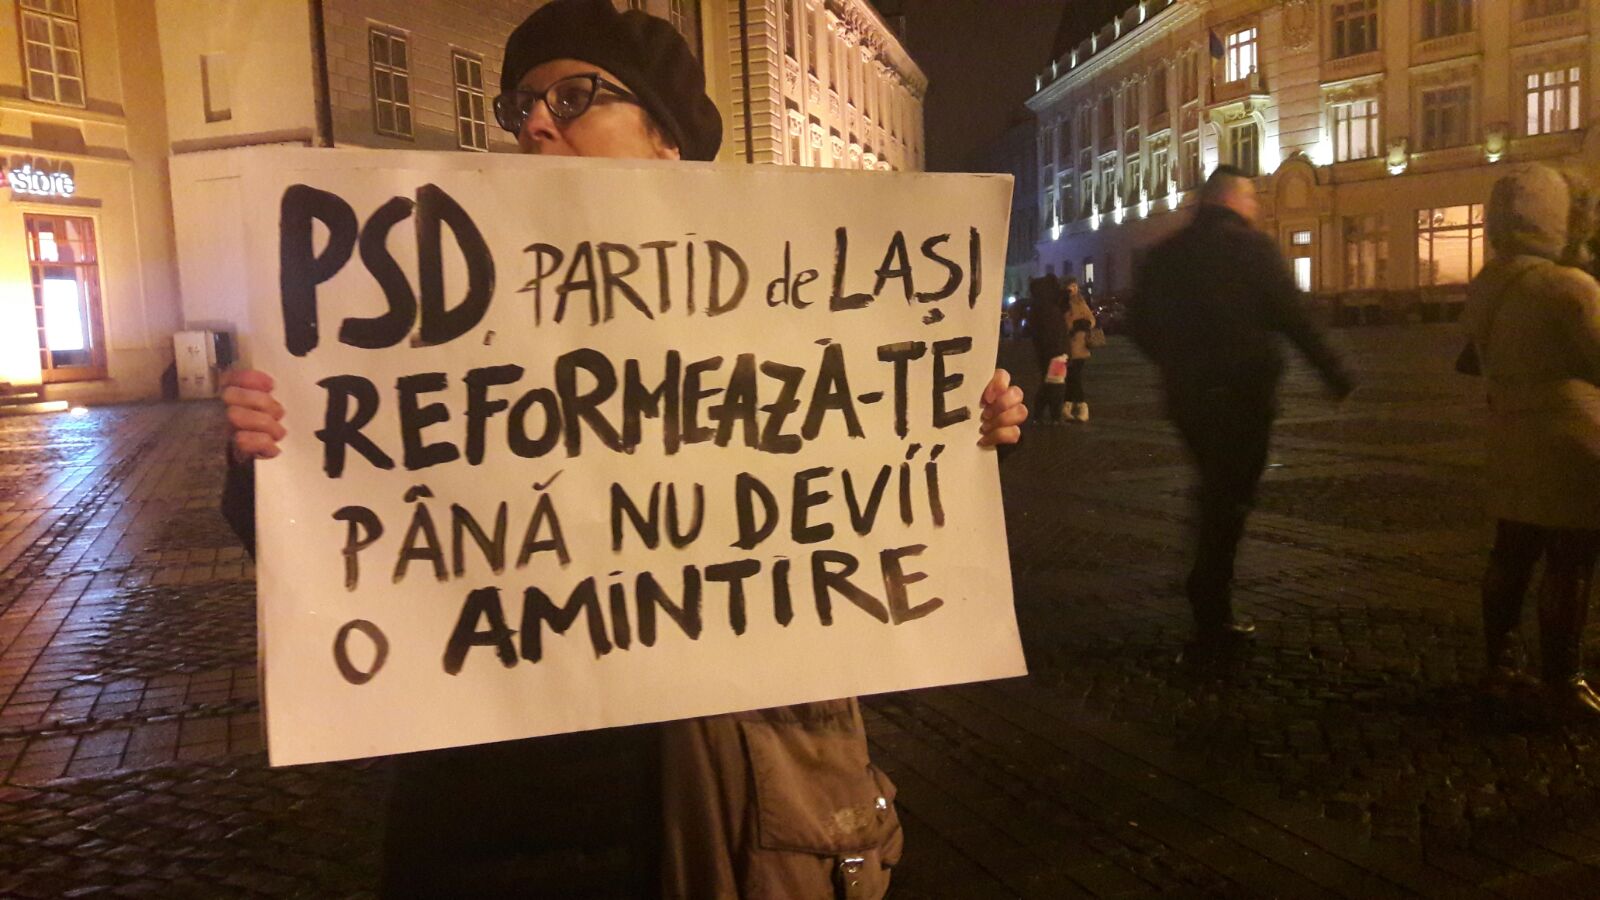 store
PSD, PARTID de LAȘI
REFORMEAZĂ-TE
PÂNĂ NU DEVII
O AMINTIRE